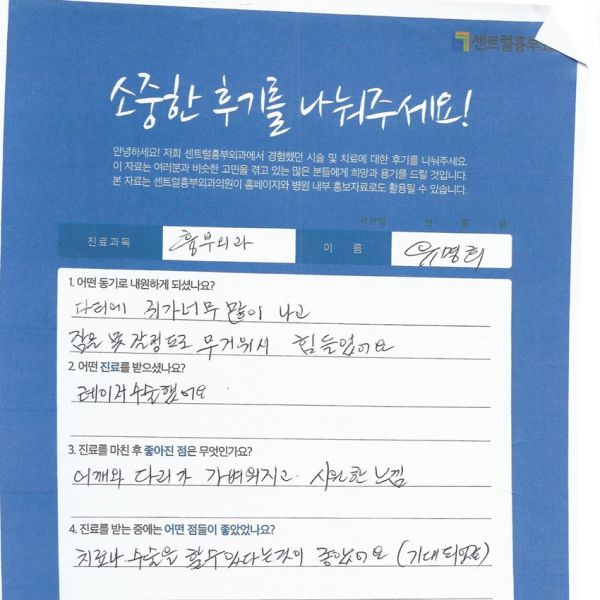 센트럴흉부외
소중한 후기를 나눠주세요!
안녕하세요! 저희 센트럴흉부외과에서 경험했던 시술 및 치료에 대한 후기를 나눠주세요.
이 자료는 여러분과 비슷한 고민을 겪고 있는 많은 분들에게 희망과 용기를 드릴 것입니다.
본 자료는 센트럴흉부외과의원이 홈페이지와 병원 내부 홍보자료로도 활용될 수 있습니다.
작성일 년 월 일
진료과목 흉부외과 이 름 유명희
1. 어떤 동기로 내원하게 되셨나요?
다리에 쥐가너무 많이 나고
잠을 못 잘정도로 무거워서 힘들었어요
2. 어떤 진료를 받으셨나요?
레이저수술했어요
3. 진료를 마친 후 좋아진 점은 무엇인가요?
어깨와 다리가 가벼워지고. 시원한 느낌
4. 진료를 받는 중에는 어떤 점들이 좋았었나요?
치료나 수술을 할수있다는것이 좋았어요